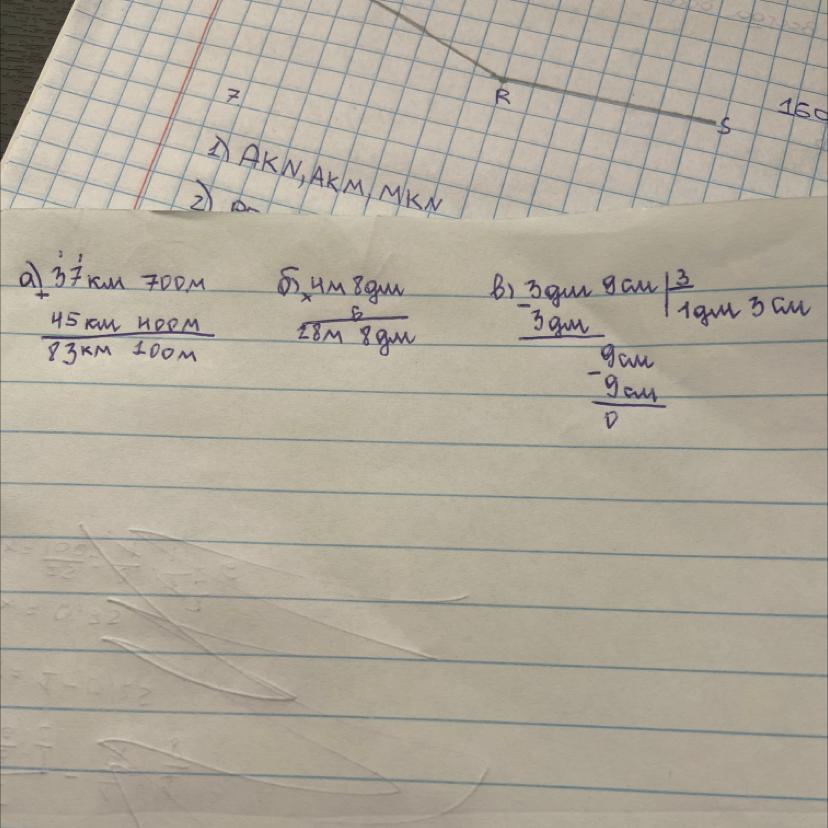 R
S
160
7
1) AKN, AKM, MKN
2)
а) 37км 700м
+
45км 400м
83км 100м
б) 4м 8дм
×
6
28м 8дм
в) 3дм 9см | 3
- 3дм
1дм 3см
9см
- 9см
0